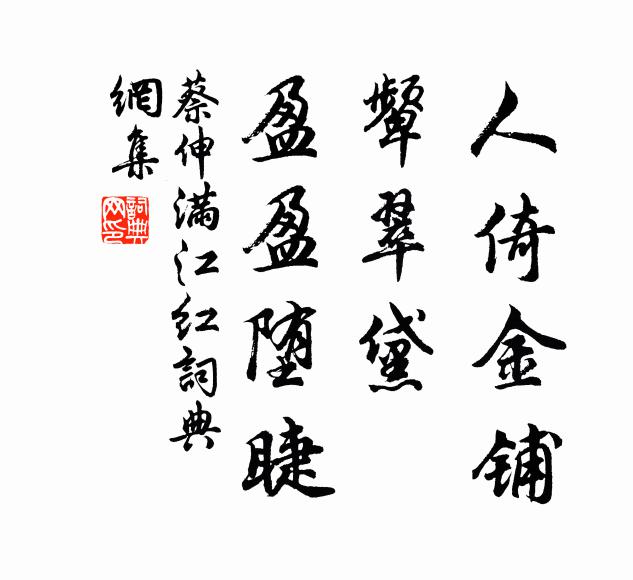 人倚金铺
颦翠黛
盈盈堕睫
蔡伸满江红詞典
網集
詞典网印